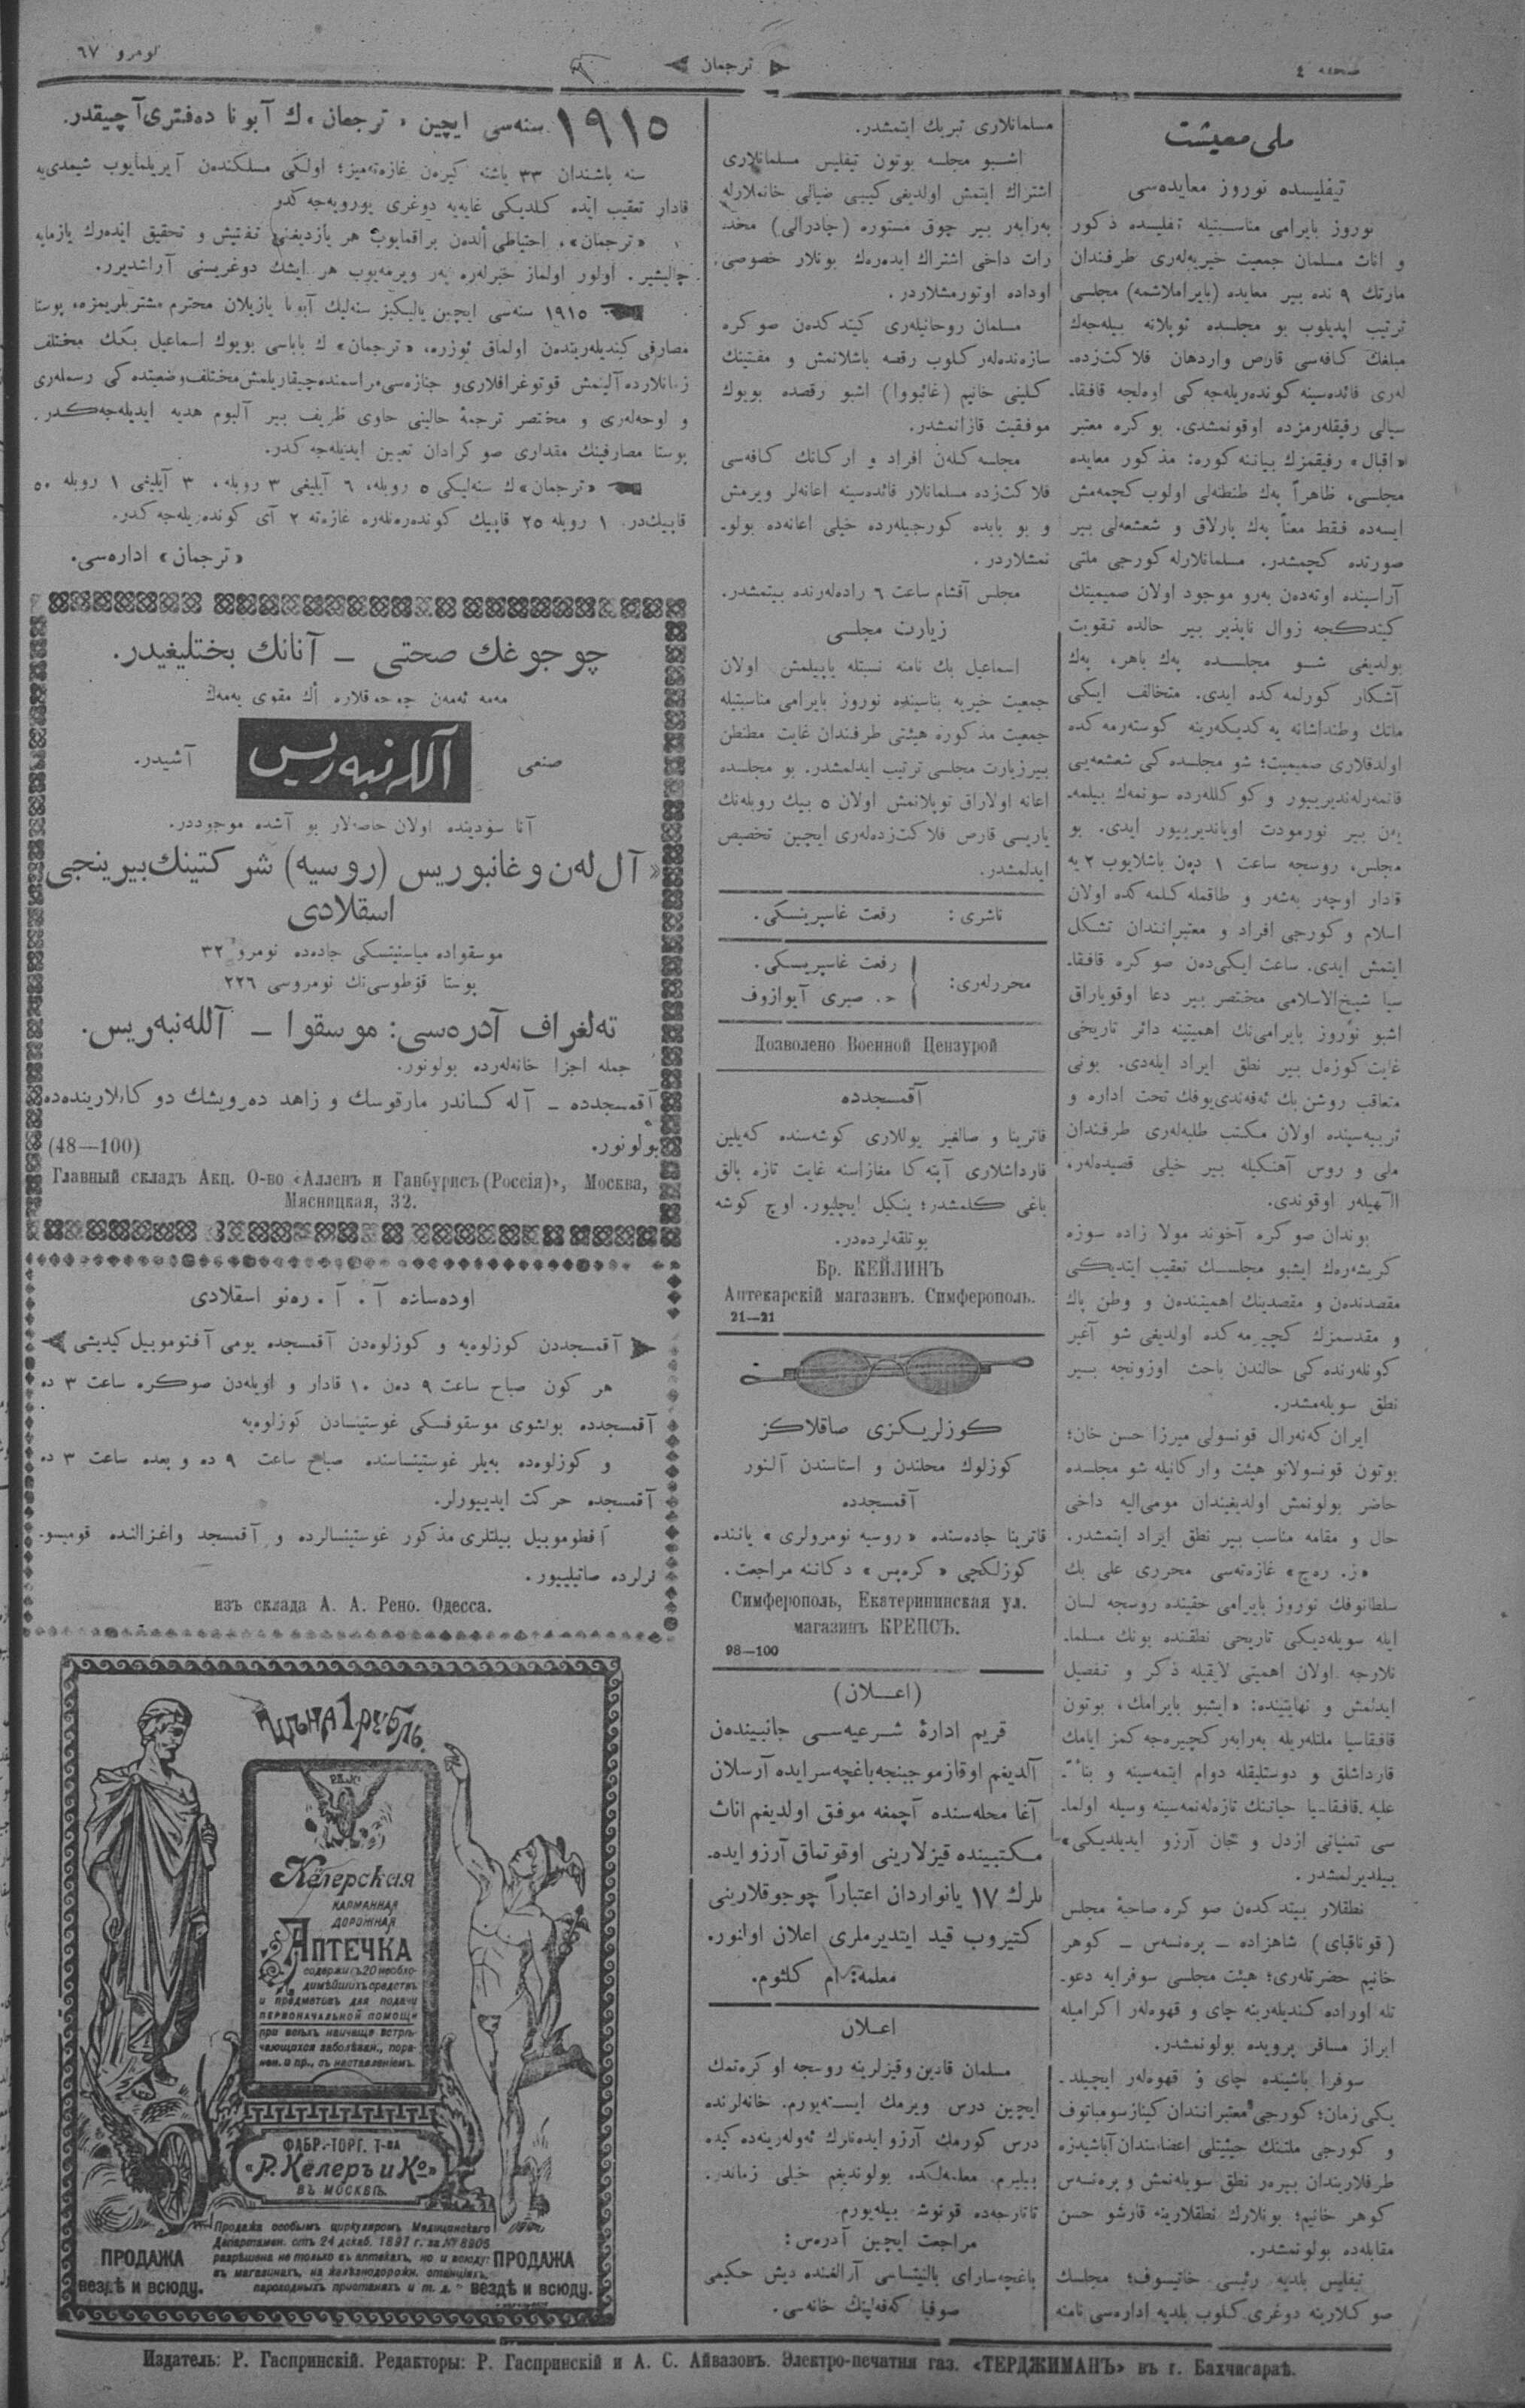 صحفه ٤
ترجمان
نومرو ٦٧
ملی معیشت
تیفلیسده نوروز معایده‌سی
نوروز بایرامی مناسبتیله تفلیسده ذکور
و اناث مسلمان جمعیت خیریه‌لەری طرفندان
مارتك ٩ نده بیر معایده (بایراملاشمه) مجلسی
ترتیب ایدیلوب بو مجلسده توپلانه بیله‌جەك
مبلغك کافه‌سی قارص واردهان فلاکت‌زده‌ـ
لەری فائده‌سینه کوندەریله‌جه‌کی اولجه قافقاـ
سیالی رفیقلەرمزده اوقونمشدی. بو کره معتبر
«اقبال» رفیقمزك بیاننه کوره: مذکور معایده
مجلسی، ظاهراً پەك طنطنه‌لی اولوب کچمەمش
ایسەده فقط معناً پەك پارلاق و شعشعه‌لی بیر
صورتده کچمشدر. مسلمانلارله کورجی ملتی
آراسینده اوتەدن بەرو موجود اولان صمیمیتك
کیتدکجه زوال ناپذیر بیر حالده تقویت
بولدیغی شو مجلسده پەك باهر، پەك
آشکار کورلمه‌کده ایدی. متخالف ایکی
ملتك وطنداشانه یه‌کدیکەرینه کوستەرمه‌کده
اولدقلاری صمیمیت؛ شو مجلسده کی شعشعه‌یی
مجلس، روسجه ساعت ١ دەن باشلایوب ٢ یه
قادار اوچەر بەشەر و طاقمله کلمه‌کده اولان
اسلام و کورجی افراد و معتبرانندان تشکل
ایتمش ایدی. ساعت ایکی‌دەن صوکره قافقاـ
سیا شیخ‌الاسلامی مختصر بیر دعا اوقویاراق
اشبو نوروز بایرامی‌نك اهمیتینه دائر تاریخی
غایت کوزەل بیر نطق ایراد ایله‌دی. بونی
متعاقب روشن بك ئه‌فه‌ندی‌یوفك تحت اداره و
تربیه‌سینده اولان مکتب طلبه‌لەری طرفندان
ملی و روس آهنکیله بیر خیلی قصیده‌لەر،
الٓهیلەر اوقوندی.
بوندان صوکره آخوند مولا زاده سوزه
کریشەرەك ایشبو مجلسك تعقیب ایتدیکی
مقصدندەن و مقصدینك اهمیتندەن و وطن پاك
و مقدسمزك کچیرمه‌کده اولدیغی شو آغیر
کونلەرنده‌کی حالندن باحث اوزونجه بیر
نطق سویله‌مشدر.
ایران که‌نه‌رال قونسولی میرزا حسن خان؛
بوتون قونسولاتو هیئت وارکانیله شو مجلسده
حاضر بولونمش اولدیغیندان مومی‌الیه داخی
حال و مقامه مناسب بیر نطق ایراد ایتمشدر.
«ز. رەچ» غازەتەسی محرری علی بك
سلطانوفك نوروز بایرامی حقینده روسجه لسان
ایله سویله‌دیکی تاریخی نطقنده بونك مسلماـ
نلارجه اولان اهمیتی لایقیله ذکر و تفصیل
ایدلمش و نهایتینده: «ایشبو بایرامك، بوتون
قافقاسیا ملتلەریله بەرابەر کچیرەجه‌کمز ایامك
قارداشلق و دوستلیقله دوام ایتمەسینه و بناءً ـ
علیه قافقاسیا حیاتنك تازەلەنمه‌سینه وسیله اولماـ
سی تمنیاتی ازدل و جان آرزو ایدیلدیکی»
بیلدیرلمشدر.
نطقلار بیتدکدەن صوکره صاحبهٔ مجلس
(قوناقبای) شاهزاده ـ پرەنسەس ـ کوهر
خانیم حضرتلەری؛ هیئت مجلسی سوفرایه دعوـ
تله اوراده کندیلەرینه چای و قهوەلەر اکرامیله
ابراز مسافر پرویده بولونمشدر.
سوفرا باشینده چای و قهوەلەر ایچیلدـ
یکی زمان؛ کورجی معتبرانندان کیناز سومباتوف
طرفلاریندان بیرەر نطق سویلەنمش و پرەنسەس
کوهر خانیم؛ بونلارك نطقلارینه قارشو حسن
مقابله‌ده بولونمشدر.
تیفلیس بلدیه رئیسی خاتیسوف؛ مجلسك
صوکلارینه دوغری کلوب بلدیه اداره‌سی نامنه
مسلمانلاری تبریك ایتمشدر.
اشبو مجلسه بوتون تیفلیس مسلمانلاری
اشتراك ایتمش اولدیغی کیبی ضیالی خانملارله
بەرابەر بیر چوق مستوره (چادرالی) مخدـ
رات داخی اشتراك ایدەرەك بونلار خصوصی
اوداده اوتورمشلاردر.
مسلمان روحانیلەری کیتدکدەن صوکره
سازنده‌لەر کلوب رقصه باشلانمش و مفتینك
کلینی خانیم (غائبووا) اشبو رقصده بویوك
موفقیت قازانمشدر.
مجلسه کلەن افراد و ارکانك کافه‌سی
فلاکت‌زده مسلمانلار فائده‌سینه اعانەلر ویرمش
و بو بابده کورجیلەرده خیلی اعانه‌ده بولوـ
نمشلاردر.
مجلس آقشام ساعت ٦ راده‌لەرنده بیتمشدر.
زیارت مجلسی
اسماعیل بك نامنه نسبتله یاپیلمش اولان
جمعیت خیریه بناسینده نوروز بایرامی مناسبتیله
جمعیت مذکوره هیئتی طرفندان غایت مطنطن
بیر زیارت مجلسی ترتیب ایدلمشدر. بو مجلسده
اعانه اولاراق توپلانمش اولان ٥ بیك روبله‌نك
یاریسی قارص فلاکت‌زده‌لەری ایچین تخصیص
ایدلمشدر.
ناشری: رفعت غاسپرینسکی.
محررلەری: رفعت غاسپرینسکی.
ح. صبری آیوازوف
Дозволено Военной Цензурой
آقمسجدده
قاترینا و صالغیر یوللاری کوشه‌سنده کەیلین
قارداشلاری آپته‌کا مغازاسنه غایت تازه بالق
یاغی کلمشدر؛ ینکیل ایچلیور. اوچ کوشه
بوتلقەلرده‌در.
Бр. КЕЙЛИНЪ
Аптекарскій магазинъ. Симферополь.
21—21
کوزلریکزی صاقلاکز
کوزلوك محلندن و استاسندن آلنور
آقمسجدده
قاترینا جاده‌سنده «روسیه نومرولری» یاننده
کوزلکچی «کرەپس» دکاننه مراجعت.
Симферополь, Екатерининская ул.
магазинъ КРЕПСЪ.
98—100
(اعلان)
قریم ادارهٔ شرعیه‌سی جانبیندەن
آلدیغم اوقاز موجبنجه باغچه‌سرایده آرسلان
آغا محله‌سنده آچمغه موفق اولدیغم اناث
مکتبینده قیزلارینی اوقوتماق آرزو ایدەـ
نلرك ١٧ یانواردان اعتباراً چوجوقلارینی
کتیروب قید ایتدیرملری اعلان اولنور.
معلمه: ام کلثوم.
اعلان
مسلمان قادین و قیزلرینه روسجه اوکرەتمك
ایچین درس ویرمك ایستەیورم. خانه‌لرنده
درس کورمك آرزو ایدەنلرك ئەولەرینه‌ده کیده
بیلیرم. معلمه‌لکده بولوندیغم خیلی زماندر.
تاتارجه‌ده قونوشه بیلەیورم.
مراجعت ایچین آدرەس:
باغچه‌سارای بالنیتساسی آرالغنده دیش حکیمی
صوفیا که‌فه‌لینك خانه‌سی.
١٩١٥ سنه‌سی ایچین «ترجمان»ك آبونا دەفتری آچیقدر.
سنه باشندان ٣٣ یاشنه کیرەن غازەتەمیز؛ اولکی مسلکندەن آیریلمایوب شیمدی‌یه
قادار تعقیب ایده کلدیکی غایه‌یه دوغری یورویه‌جه‌کدر.
«ترجمان»، احتیاطی ألدەن براقمایوب هر یازدیغنی تفتیش و تحقیق ایدەرك یازمایه
چالیشیر. اولور اولماز خبرلەره یەر ویرمه‌یوب هر ایشك دوغریسنی آراشدیرر.
١٩١٥ سنه‌سی ایچین یالیکز سنه‌لیك آبونا یازیلان محترم مشتریلریمزه، پوستا
مصارفی کیندیلەریندەن اولماق ئوزره، «ترجمان»ك باباسی بویوك اسماعیل بکك مختلف
زمانلارده آلینمش فوتوغرافلاری و جنازه‌سی مراسمنده چیقاریلمش مختلف وضعیتده‌کی رسملەری
و لوحه‌لەری و مختصر ترجمهٔ حالینی حاوی ظریف بیر آلبوم هدیه ایدیله‌جه‌کدر.
پوستا مصارفینك مقداری صوکرادان تعیین ایدیله‌جه‌کدر.
«ترجمان»ك سنه‌لیکی ٥ روبله، ٦ آیلیغی ٣ روبله، ٣ آیلیغی ١ روبله ٥٠
قاپیك‌در. ١ روبله ٢٥ قاپیك کوندەرەنلەره غازەته ٢ آی کوندەریله‌جه‌کدر.
«ترجمان» اداره‌سی.
چوجوغك صحتی ـ آنانك بختلیغیدر.
مەمه ئەمەن چوجوقلاره أك مقوی یەمەك
صنعی آللەنبەریس آشیدر.
آنا سودینده اولان خاصه‌لار بو آشده موجوددر.
«آل‌لەن و غانبوریس (روسیه) شرکتینك بیرینجی
اسقلادی
موسقواده میاسنیتسکی جاده‌ده نومرو ٣٢
پوستا قوطوسی‌نك نومروسی ٢٢٦
تەلغراف آدرەسی: موسقوا ـ آللەنبەریس.
جمله اجزا خانه‌لەرده بولونور.
آقمسجدده ـ آلەکساندر مارقوسك و زاهد دەرویشك دوکانلارینده‌ده
بولونور. (48—100)
Главный складъ Акц. О-во «Алленъ и Ганбурисъ (Россія)», Москва,
Мясницкая, 32.
اوده‌ساده آ. آ. رەنو اسقلادی
آقمسجددن کوزلوەیه و کوزلوەدن آقمسجده یومی آفتوموبیل کیدیشی
هر کون صباح ساعت ٩ دەن ١٠ قادار و اویله‌دن صوکره ساعت ٣ ده
آقمسجدده بولشوی موسقوفسکی غوستینسادن کوزلوەیه
و کوزلوەده بەیلر غوستینساسنده صباح ساعت ٩ ده و بعده ساعت ٣ ده
آقمسجده حرکت ایدییورلر.
آفطوموبیل بیلتلری مذکور غوستینسالرده و آقمسجد واغزالنده قومیسوـ
نرلرده صاتیلییور.
изъ склада А. А. Рено. Одесса.
ЦѢНА 1 РУБЛЬ.
Келерская
КАРМАННАЯ
ДОРОЖНАЯ
АПТЕЧКА
содержитъ 20 необхо-
димѣйшихъ средствъ
и предметовъ для подачи
ПЕРВОНАЧАЛЬНОЙ ПОМОЩИ
при всѣхъ наичаще встрѣ-
чающихся заболѣван., пора-
нен. и пр., съ наставленіемъ.
ФАБР.-ТОРГ. Т-ВА
«Р. Келеръ и Ко»
ВЪ МОСКВѢ.
Продажа особымъ циркуляромъ Медицинскаго
Департамен. отъ 24 декаб. 1897 г. за № 8905
разрѣшена не только въ аптекахъ, но и всюду:
въ магазинахъ, на желѣзнодорожн. станціяхъ,
пароходныхъ пристаняхъ и т. д.
ПРОДАЖА
вездѣ и всюду.
ПРОДАЖА
вездѣ и всюду.
Издатель: Р. Гаспринскій. Редакторы: Р. Гаспринскій и А. С. Айвазовъ. Электро-печатня газ. «ТЕРДЖИМАНЪ» въ г. Бахчисараѣ.